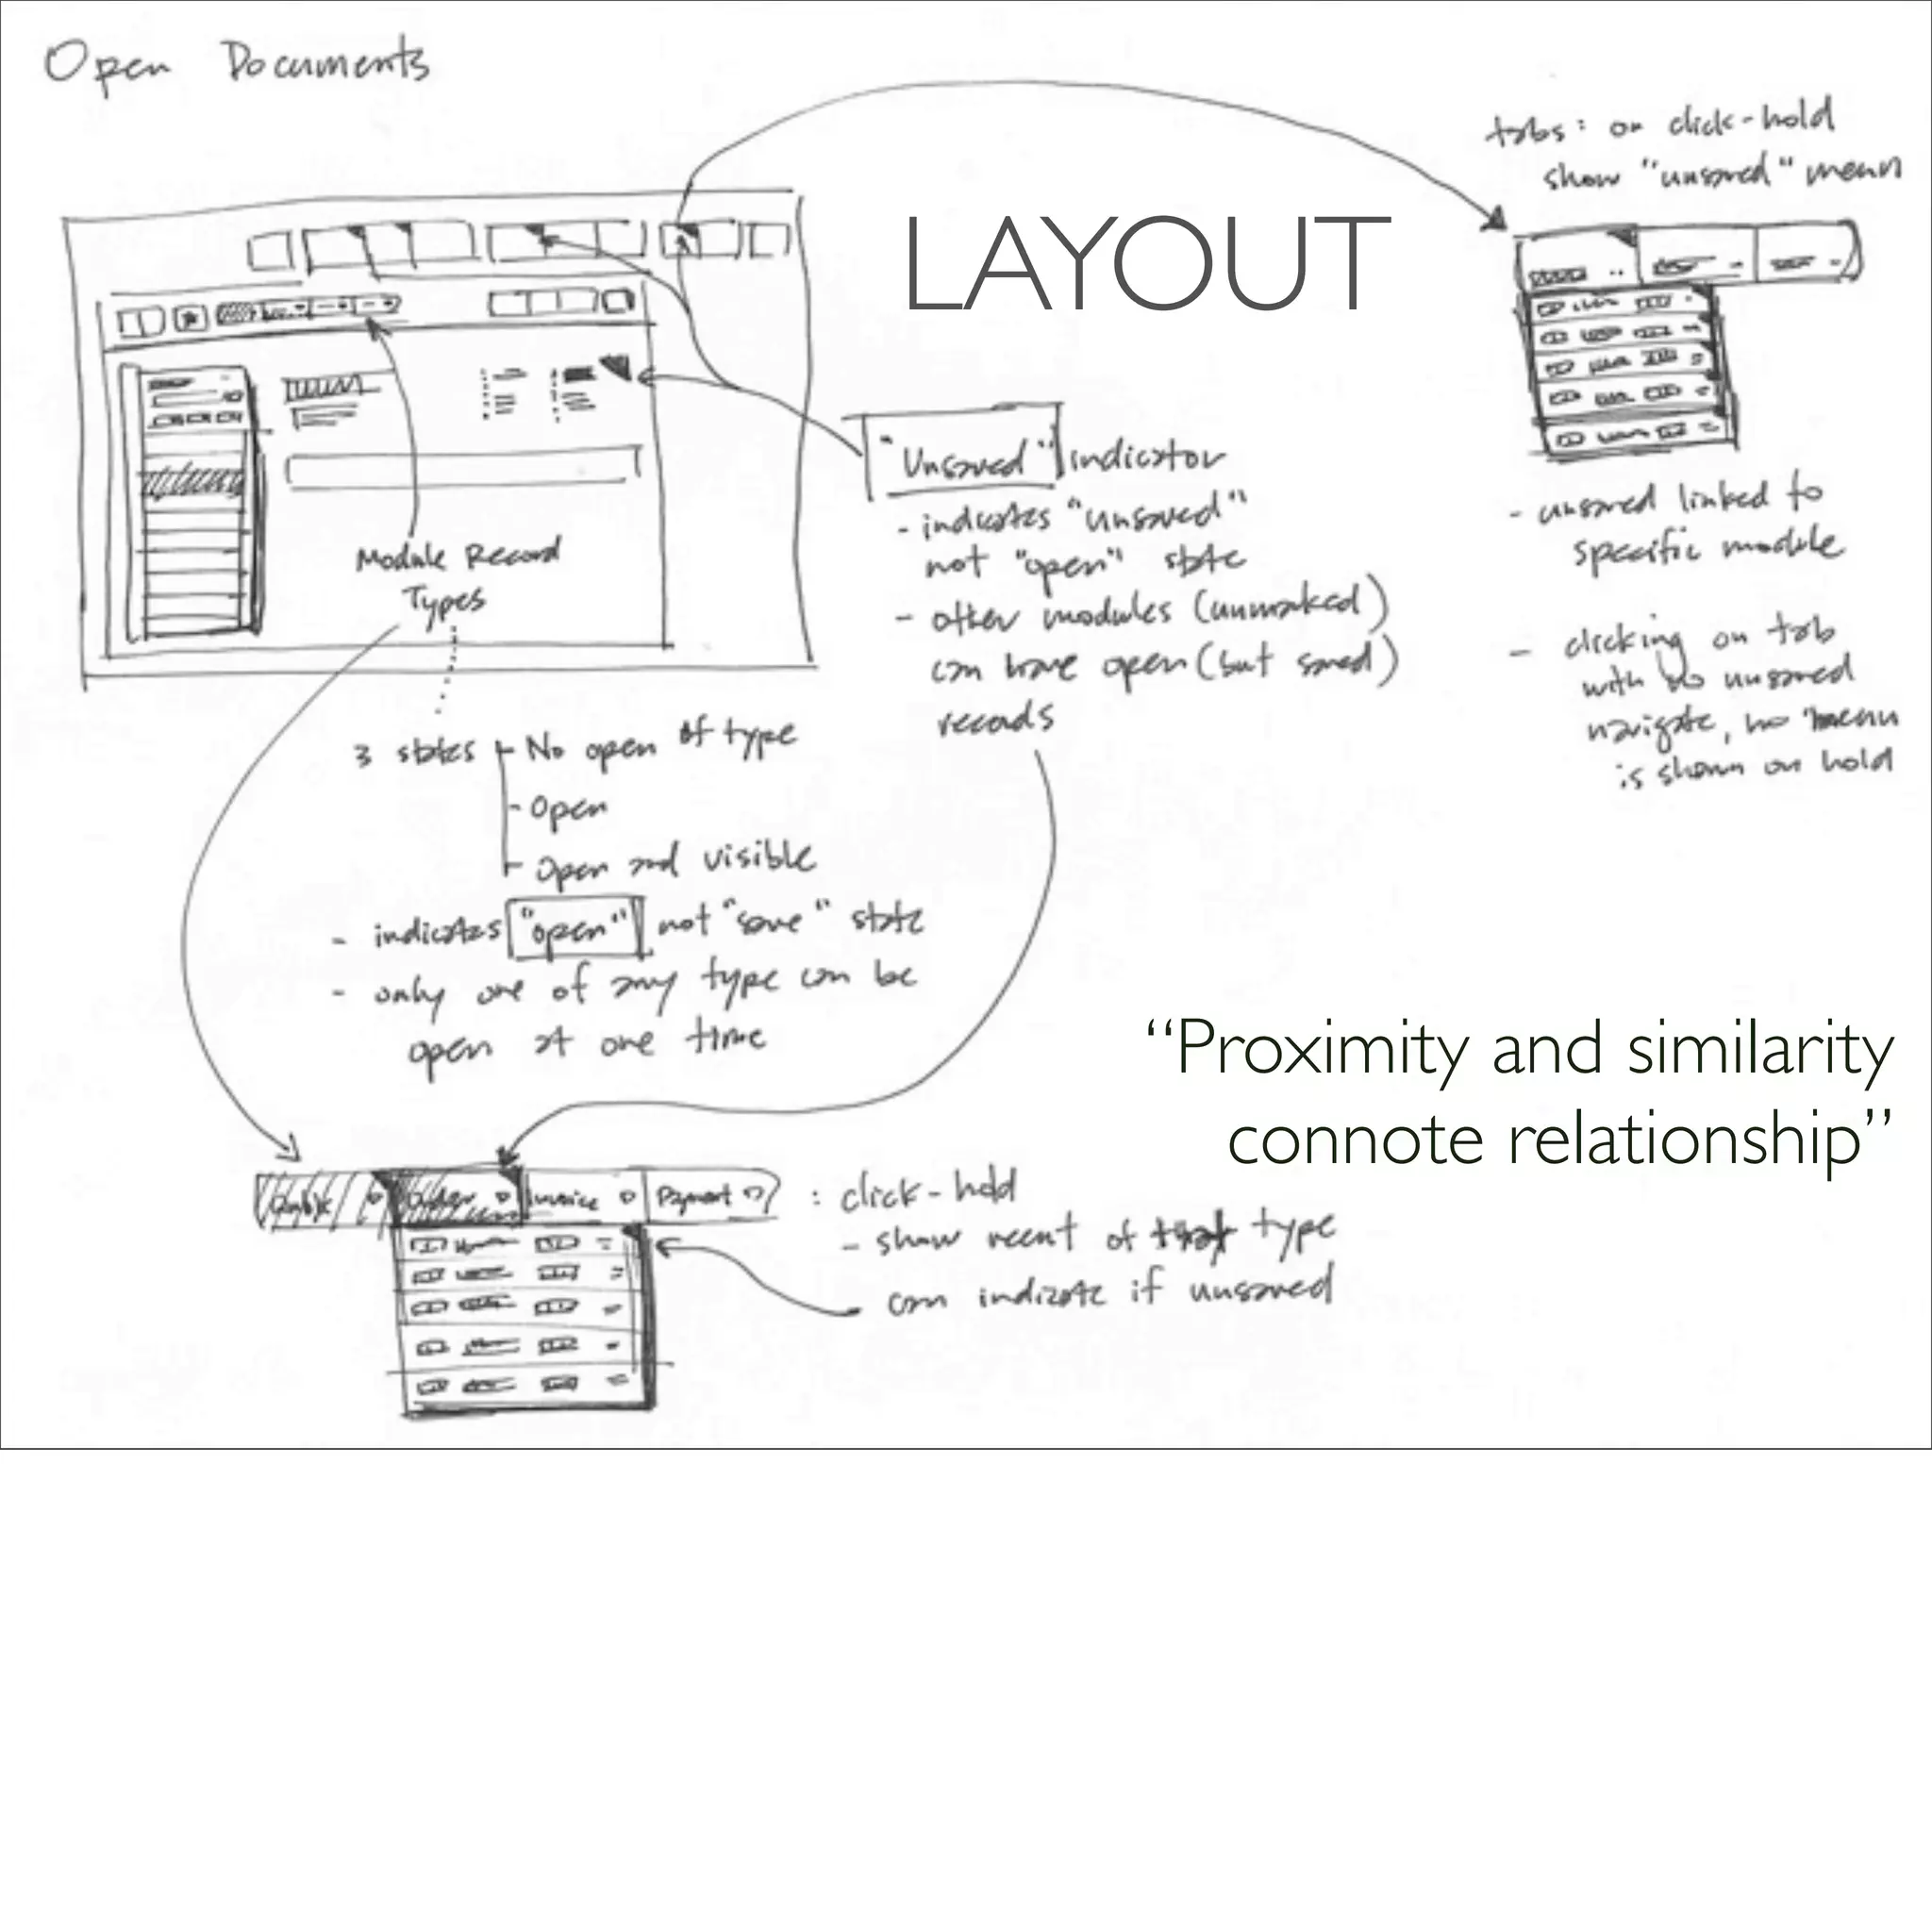 Open Documents
LAYOUT
tabs: on click-hold
show "unsaved" menu
- unsaved linked to
specific module
- clicking on tab
with no unsaved
navigate, no menu
is shown on hold
"Unsaved" indicator
- indicates "unsaved"
not "open" state
- other modules (unmarked)
can have open (but saved)
records
Module Record
Types
3 states - No open of type
- Open
- Open and visible
- indicates "open" not "save" state
- only one of any type can be
open at one time
“Proximity and similarity
connote relationship”
Order Invoice Payment
: click-hold
- show recent of that type
can indicate if unsaved